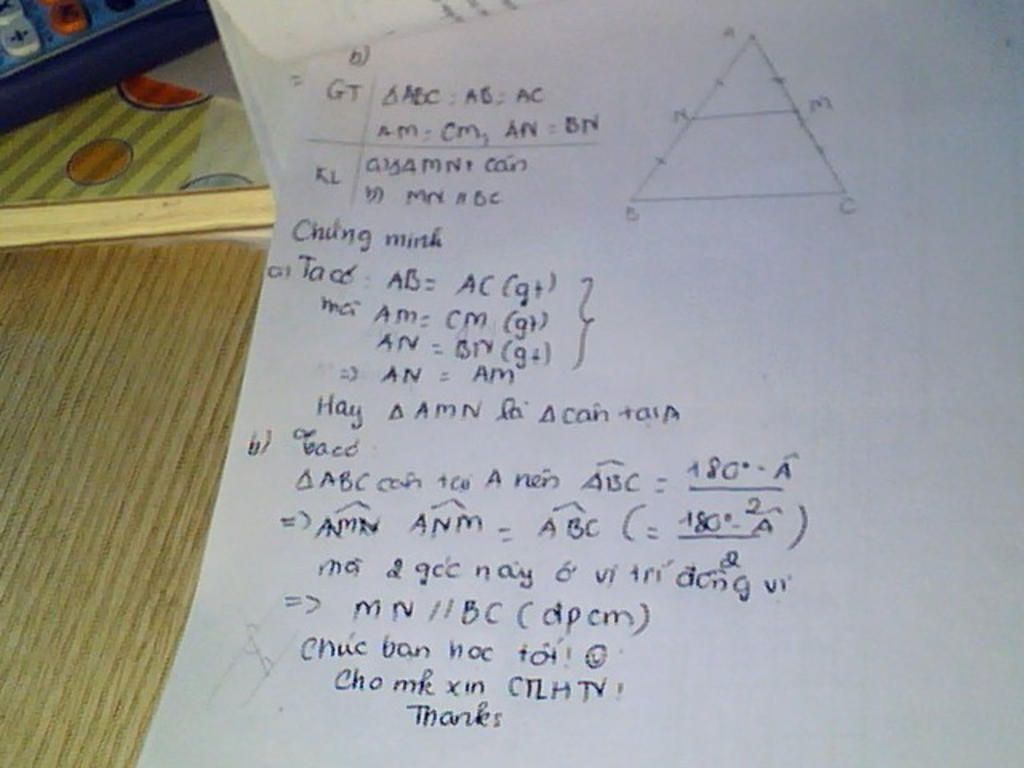 b)
GT ΔABC : AB = AC
AM = CM, AN = BN
KL a) ΔAMN cân
b) MN // BC
A
N M
B C
Chứng minh
a) Ta có: AB = AC (gt)
mà AM = CM (gt)
AN = BN (gt)
=> AN = AM
Hay Δ AMN là Δ cân tại A
b) Ta có
ΔABC cân tại A nên ABC = 180° - Â / 2
=> AMN ANM = ABC (= 180° - Â / 2)
mà 2 góc này ở vị trí đồng vi
=> MN // BC (đpcm)
Chúc bạn học tốt! ☺
Cho mk xin CTLHTN!
Thanks